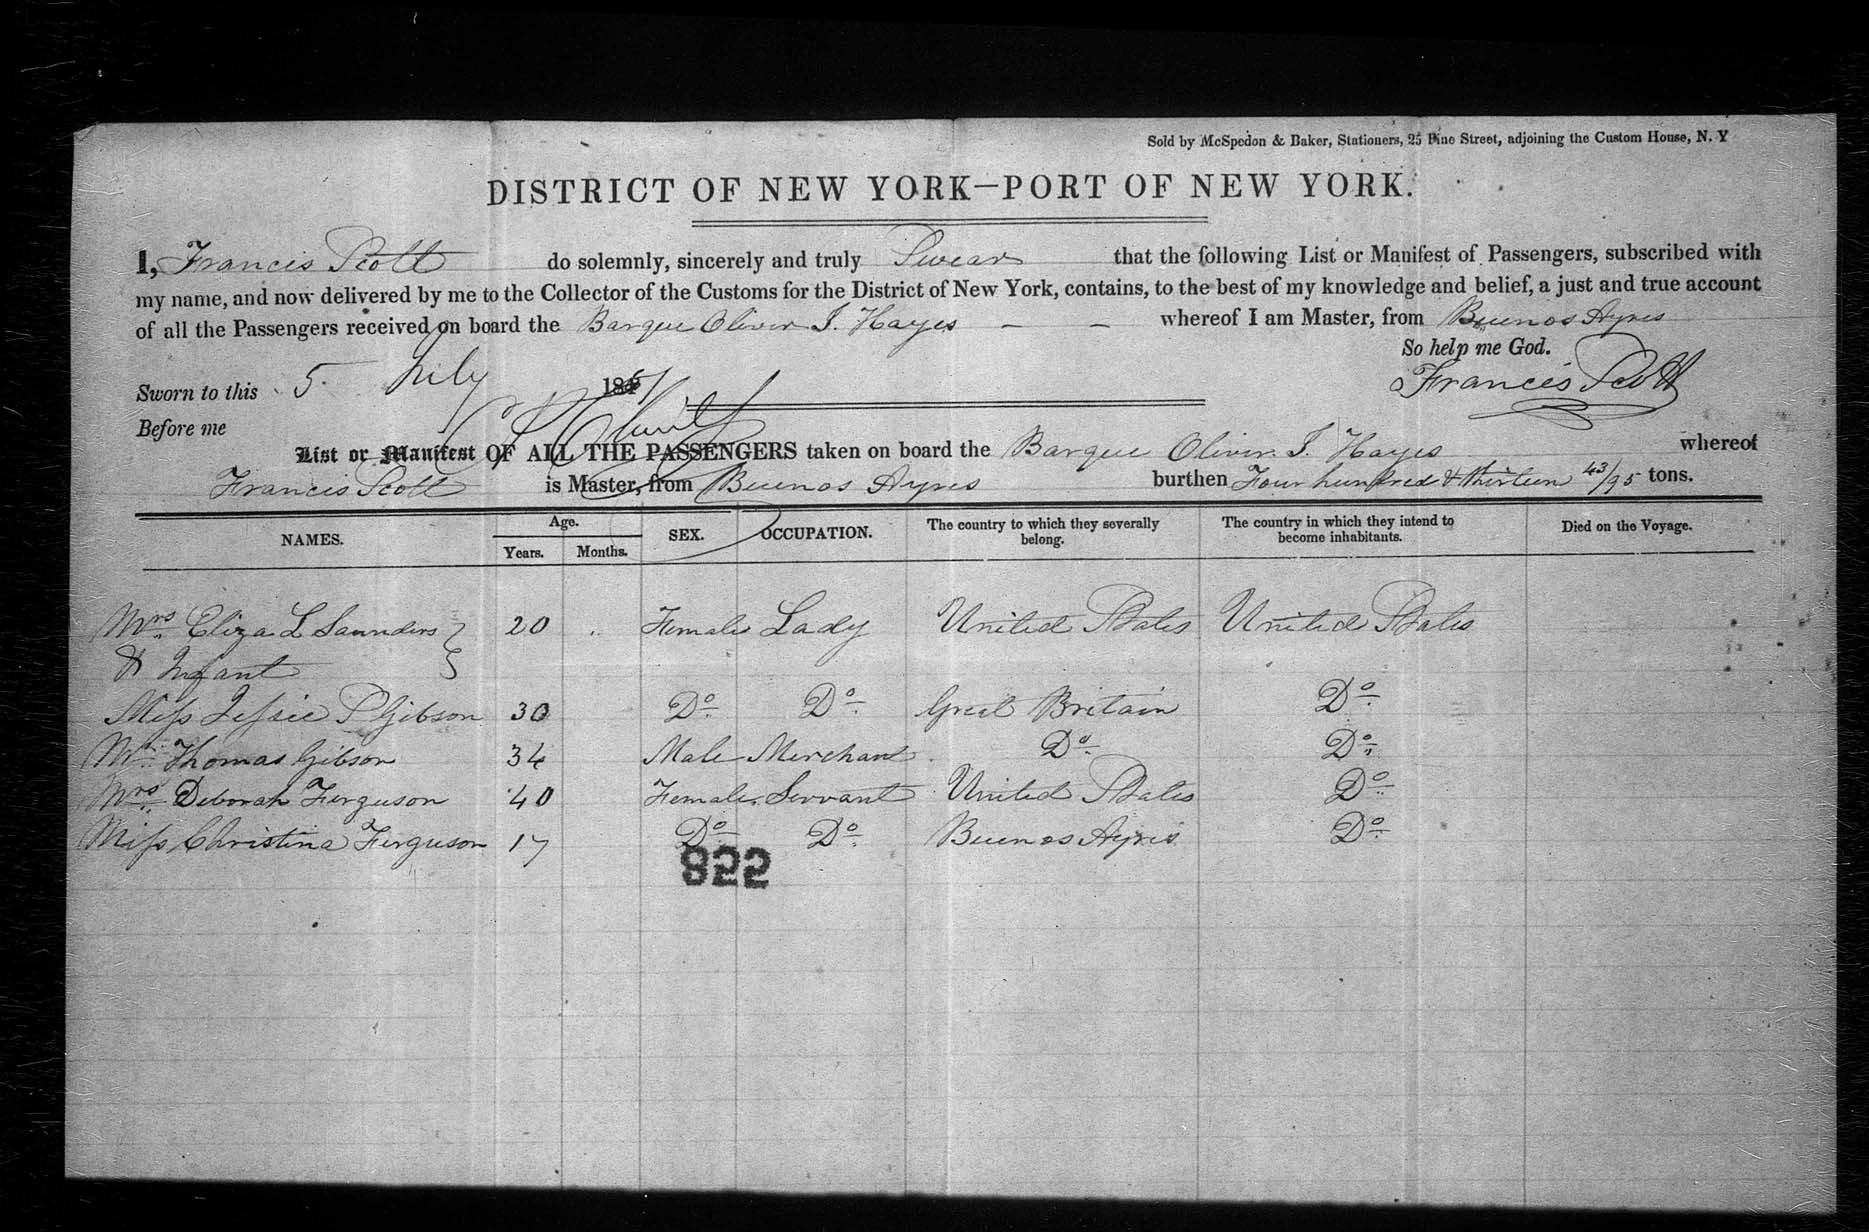 Sold by McSpedon & Baker, Stationers, 25 Pine Street, adjoining the Custom House, N. Y
DISTRICT OF NEW YORK—PORT OF NEW YORK.
I, Francis Scott do solemnly, sincerely and truly Swear that the following List or Manifest of Passengers, subscribed with
my name, and now delivered by me to the Collector of the Customs for the District of New York, contains, to the best of my knowledge and belief, a just and true account
of all the Passengers received on board the Barque Oliver J. Hayes — — whereof I am Master, from Buenos Ayres
So help me God.
Sworn to this 5 July 1851 Francis Scott
Before me
List or Manifest OF ALL THE PASSENGERS taken on board the Barque Oliver J. Hayes whereof
Francis Scott is Master, from Buenos Ayres burthen Four hundred & thirteen 43/95 tons.
NAMES. Age. Years. Months. SEX. OCCUPATION. The country to which they severally belong. The country in which they intend to become inhabitants. Died on the Voyage.
Mrs Eliza L Saunders 20 Female Lady United States United States
& Infant
Miss Jessie P Gibson 30 Do Do Great Britain Do
Mr Thomas Gibson 34 Male Merchant Do Do
Mrs Deborah Ferguson 40 Female Servant United States Do
Miss Christina Ferguson 17 Do Do Buenos Ayres Do
822